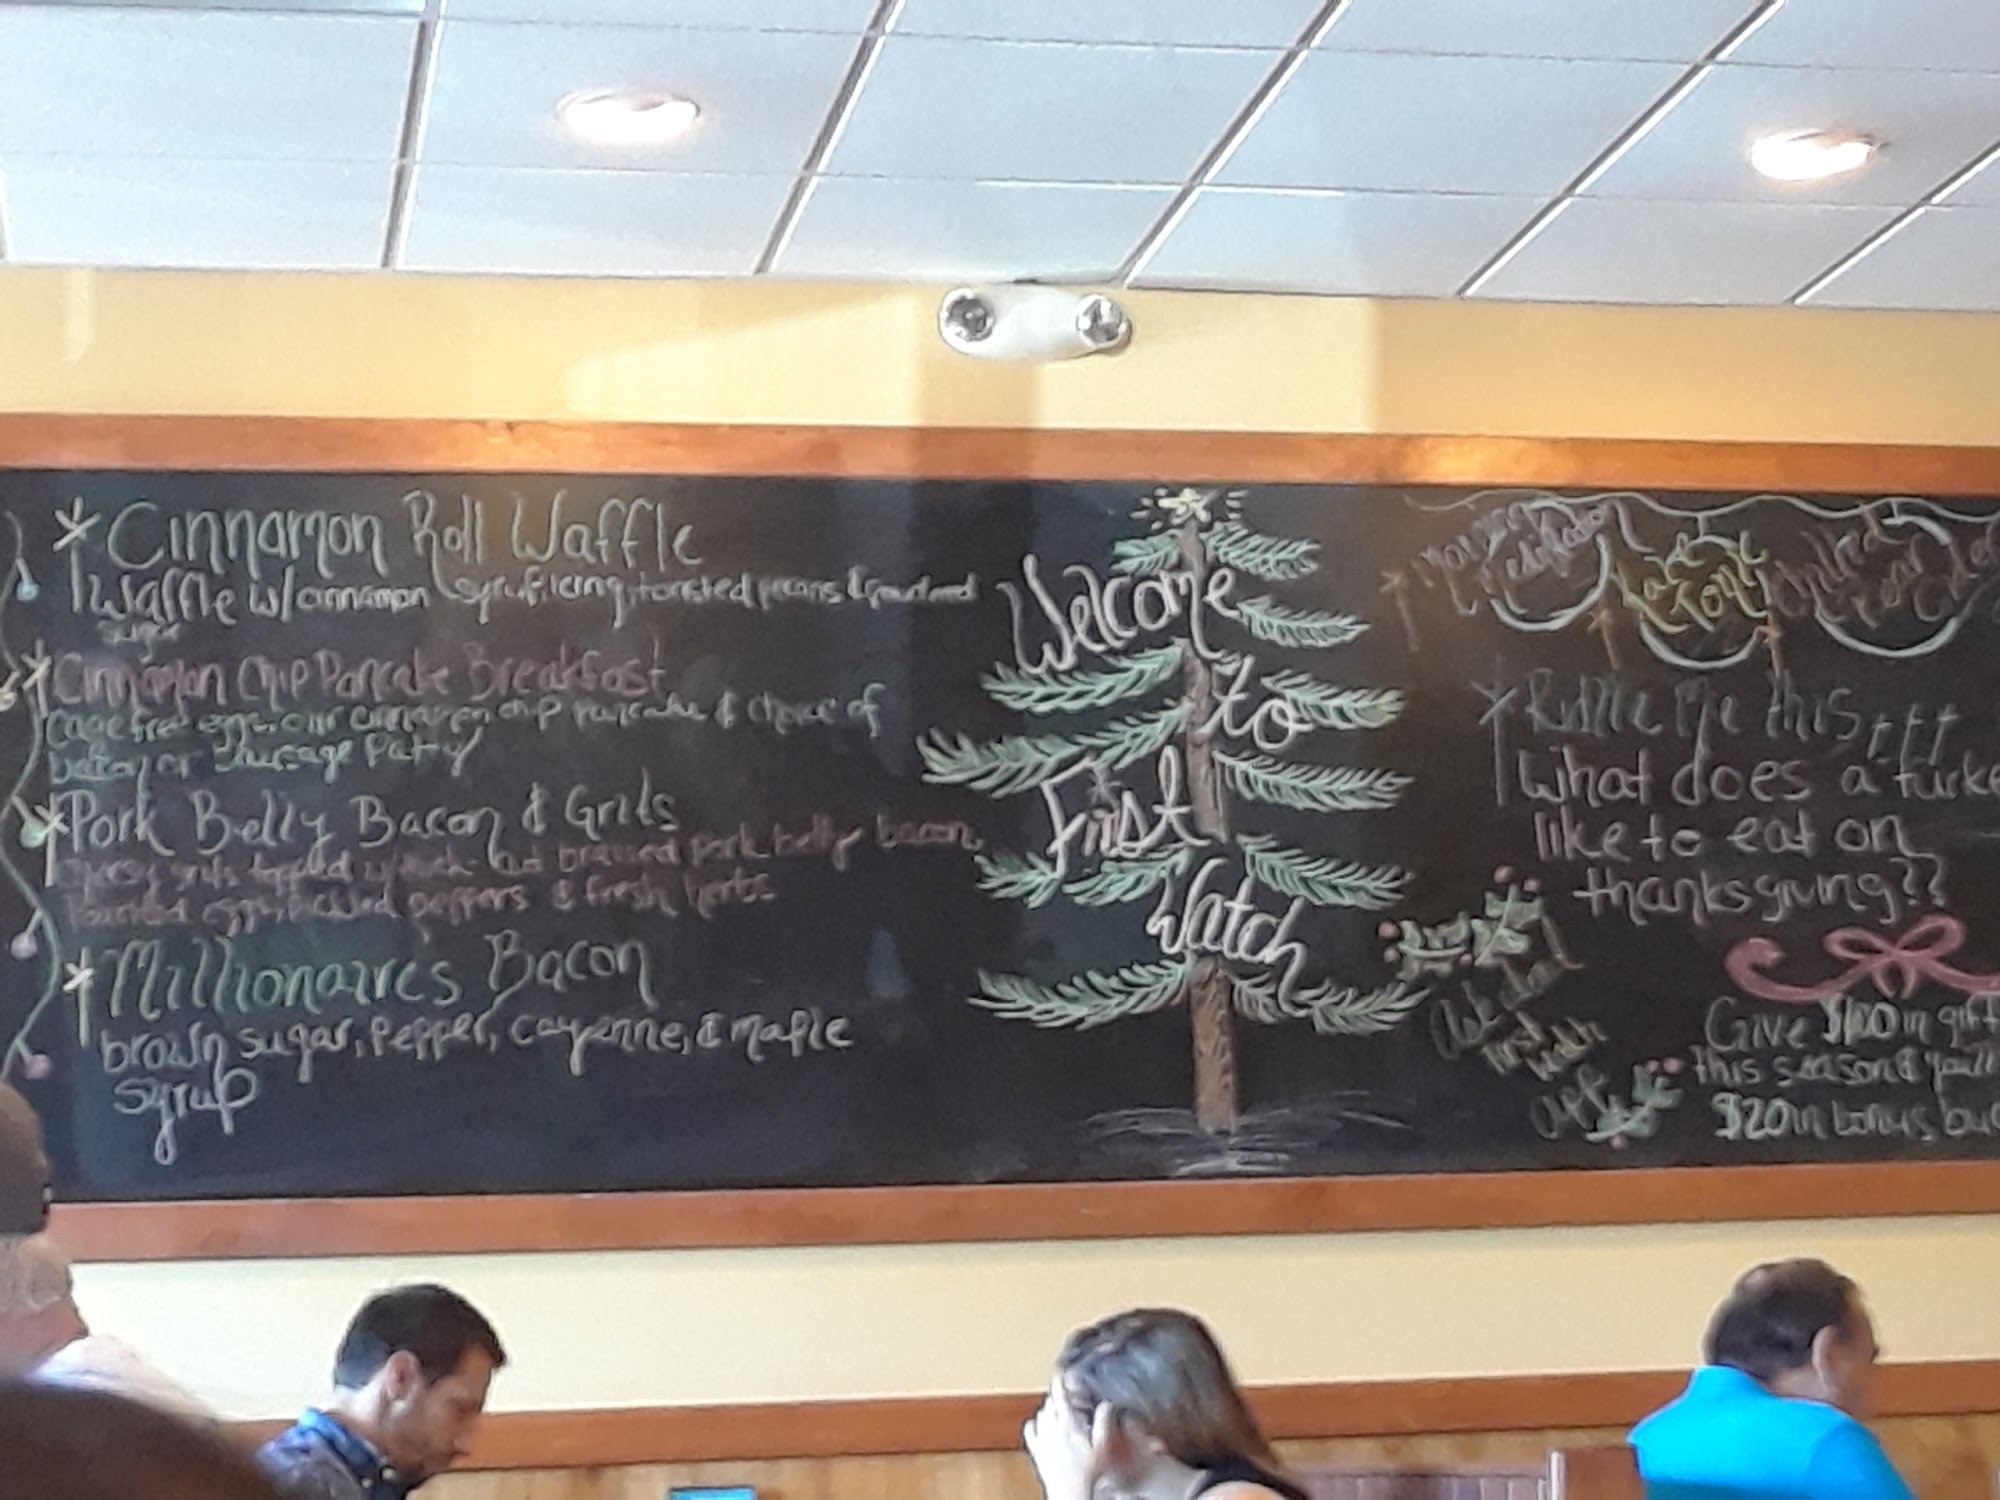 Cinnamon Roll Waffle
Waffle w/cinnamon syrup, icing, toasted pecans & powdered
sugar
Cinnamon Chip Pancake Breakfast
cage free eggs, our cinnamon chip pancake & choice of
bacon or sausage Patty
Pork Belly Bacon & Grits
cheesy grits topped w/ braised pork belly bacon,
eggs, pickled peppers & fresh herbs
Millionaires Bacon
brown sugar, Pepper, Cayenne, & maple
syrup
Welcome
to
First
Watch
Make
Riddle me this,
What does a turke
like to eat on
thanksgiving??
first
watch
Give $100 in gift
this season & you'll
$20 in bonus buc